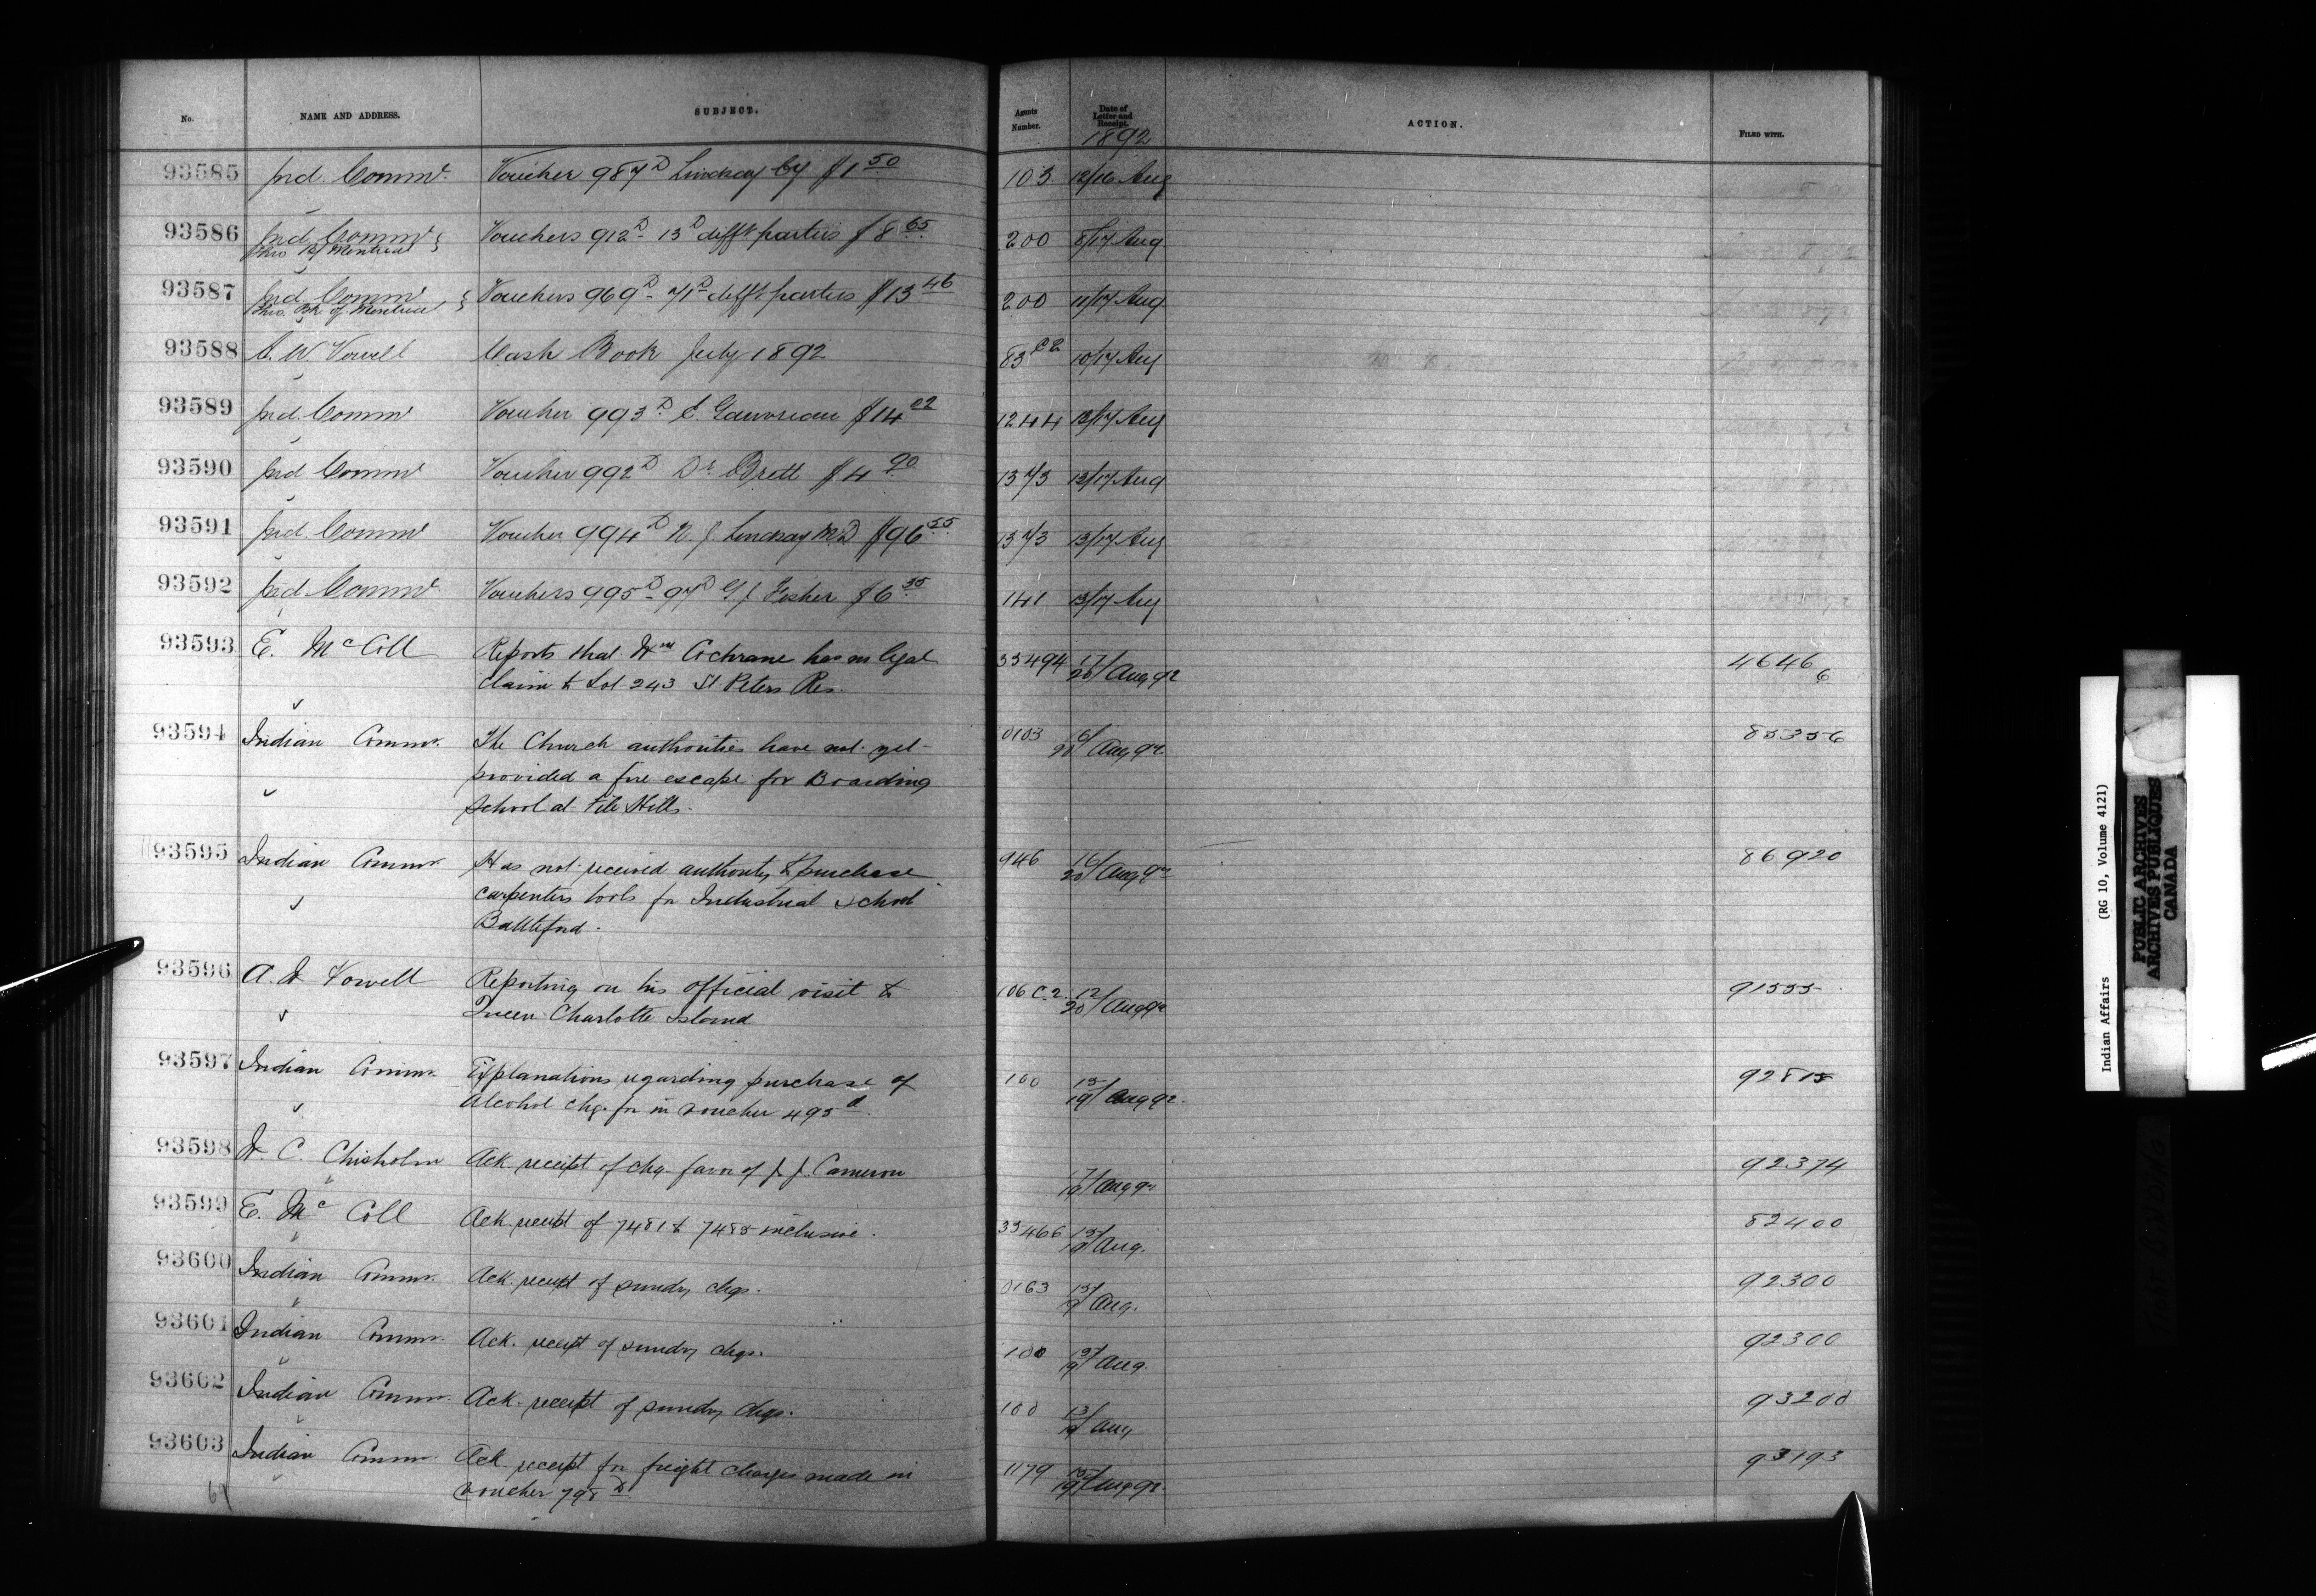 No. NAME AND ADDRESS. SUBJECT. Agents Number. Date of Letter and Receipt. ACTION. FILED WITH.
1892
93585 Ind. Commr. Voucher 987D Lindsay by $1 50 103 12/16 Aug
93586 Ind. Commr Vouchers 912D - 13D difft parties $8 65 200 8/17 Aug
thro Bk of Montreal
93587 Ind. Commr Vouchers 969D - 71D difft parties $13 46 200 11/17 Aug
thro. Bk of Montreal
93588 A. W. Vowell Cash Book July 1892 83 C2 10/17 Aug
93589 Ind. Commr Voucher 993D C. Gauvreau $14 02 1244 13/17 Aug
93590 Ind Commr Voucher 992D Dr. Brett $4 90 1373 13/17 Aug
93591 Ind. Commr Voucher 994D N. J. Lindsay M.D $96 55 1373 13/17 Aug
93592 Ind. Commr Vouchers 995D - 97D G J Fisher $6 35 141 13/17 Aug
93593 E. McColl Reports that Wm Cochrane has no legal 35494 17/20 Aug 92 46466
claim to Lot 243 St Peters Res.
93594 Indian Commr. The Church authorities have not yet 0103 16/20 Aug 92 85356
provided a fire escape for Boarding
School at File Hills.
93595 Indian Commr. Has not received authority to purchase 946 16/20 Aug 92 86920
carpenters tools for Industrial School
Battleford.
93596 A. W Vowell Reporting on his official visit to 106 C.2. 12/20 Aug 92 91555
Queen Charlotte Island
93597 Indian Commr. Explanations regarding purchase of 100 15/19 Aug 92. 92815
Alcohol chg. for in voucher 495d.
93598 W. C. Chisholm Ack receipt of chq. favor of J. J. Cameron 17/19 Aug 92 92374
93599 E. Mc Coll Ack receipt of 7481 to 7485 inclusive. 35466 15/19 Aug. 82400
93600 Indian Commr. Ack. receipt of sundry chqs. 0163 15/19 Aug. 92300
93601 Indian Commr. Ack. receipt of sundry chqs. 100 15/19 Aug. 92300
93602 Indian Commr. Ack. receipt of sundry chqs. 100 13/19 Aug 93200
93603 Indian Commr Ack receipt for freight charges made in 1179 15/19 Aug 92. 93193
voucher 798D.
Indian Affairs (RG 10, Volume 4121)
PUBLIC ARCHIVES
ARCHIVES PUBLIQUES
CANADA